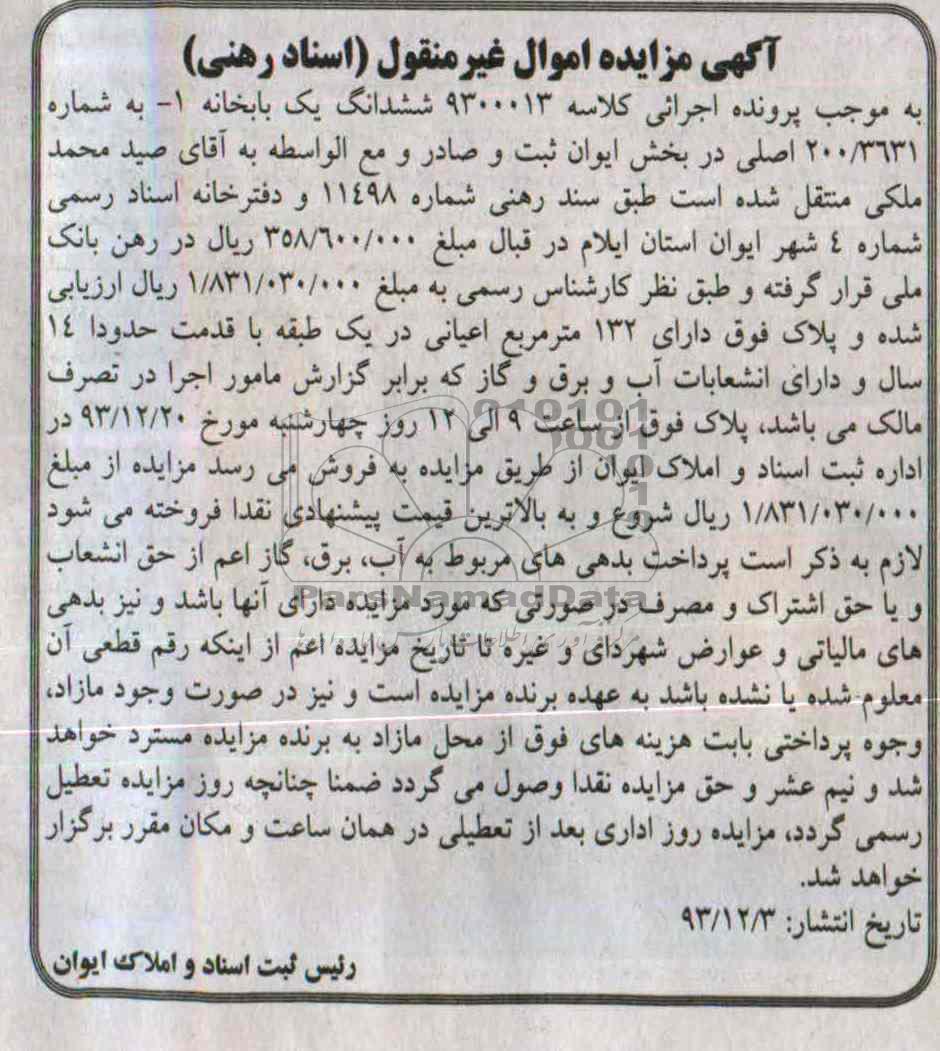 آگهی مزایده اموال غیر منقول (اسناد رهنی)
به موجب پرونده اجرائی کلاسه ۹۳۰۰۰۱۳ ششدانگ یک بابخانه ۱- به شماره
۲۰۰/۳۶۳۱ اصلی در بخش ایوان ثبت و صادر و مع الواسطه به آقای صید محمد
ملکی منتقل شده است طبق سند رهنی شماره ۱۱٤۹۸ و دفترخانه اسناد رسمی
شماره ٤ شهر ایوان استان ایلام در قبال مبلغ ۳۵۸/۶۰۰/۰۰۰ ریال در رهن بانک
ملی قرار گرفته و طبق نظر کارشناس رسمی به مبلغ ۱/۸۳۱/۰۳۰/۰۰۰ ریال ارزیابی
شده و پلاک فوق دارای ۱۳۲ مترمربع اعیانی در یک طبقه با قدمت حدودا ۱٤
سال و دارای انشعابات آب و برق و گاز که برابر گزارش مامور اجرا در تصرف
مالک می باشد، پلاک فوق از ساعت ۹ الی ۱۲ روز چهارشنبه مورخ ۹۳/۱۲/۲۰ در
اداره ثبت اسناد و املاک ایوان از طریق مزایده به فروش می رسد مزایده از مبلغ
۱/۸۳۱/۰۳۰/۰۰۰ ریال شروع و به بالاترین قیمت پیشنهادی نقدا فروخته می شود
لازم به ذکر است پرداخت بدهی های مربوط به آب، برق، گاز اعم از حق انشعاب
و یا حق اشتراک و مصرف در صورتی که مورد مزایده دارای آنها باشد و نیز بدهی
ParsNamadData
های مالیاتی و عوارض شهردای و غیره تا تاریخ مزایده اعم از اینکه رقم قطعی آن
معلوم شده یا نشده باشد به عهده برنده مزایده است و نیز در صورت وجود مازاد،
وجوه پرداختی بابت هزینه های فوق از محل مازاد به برنده مزایده مسترد خواهد
شد و نیم عشر و حق مزایده نقدا وصول می گردد ضمنا چنانچه روز مزایده تعطیل
رسمی گردد، مزایده روز اداری بعد از تعطیلی در همان ساعت و مکان مقرر برگزار
خواهد شد.
تاریخ انتشار: ۹۳/۱۲/۳
رئیس ثبت اسناد و املاک ایوان